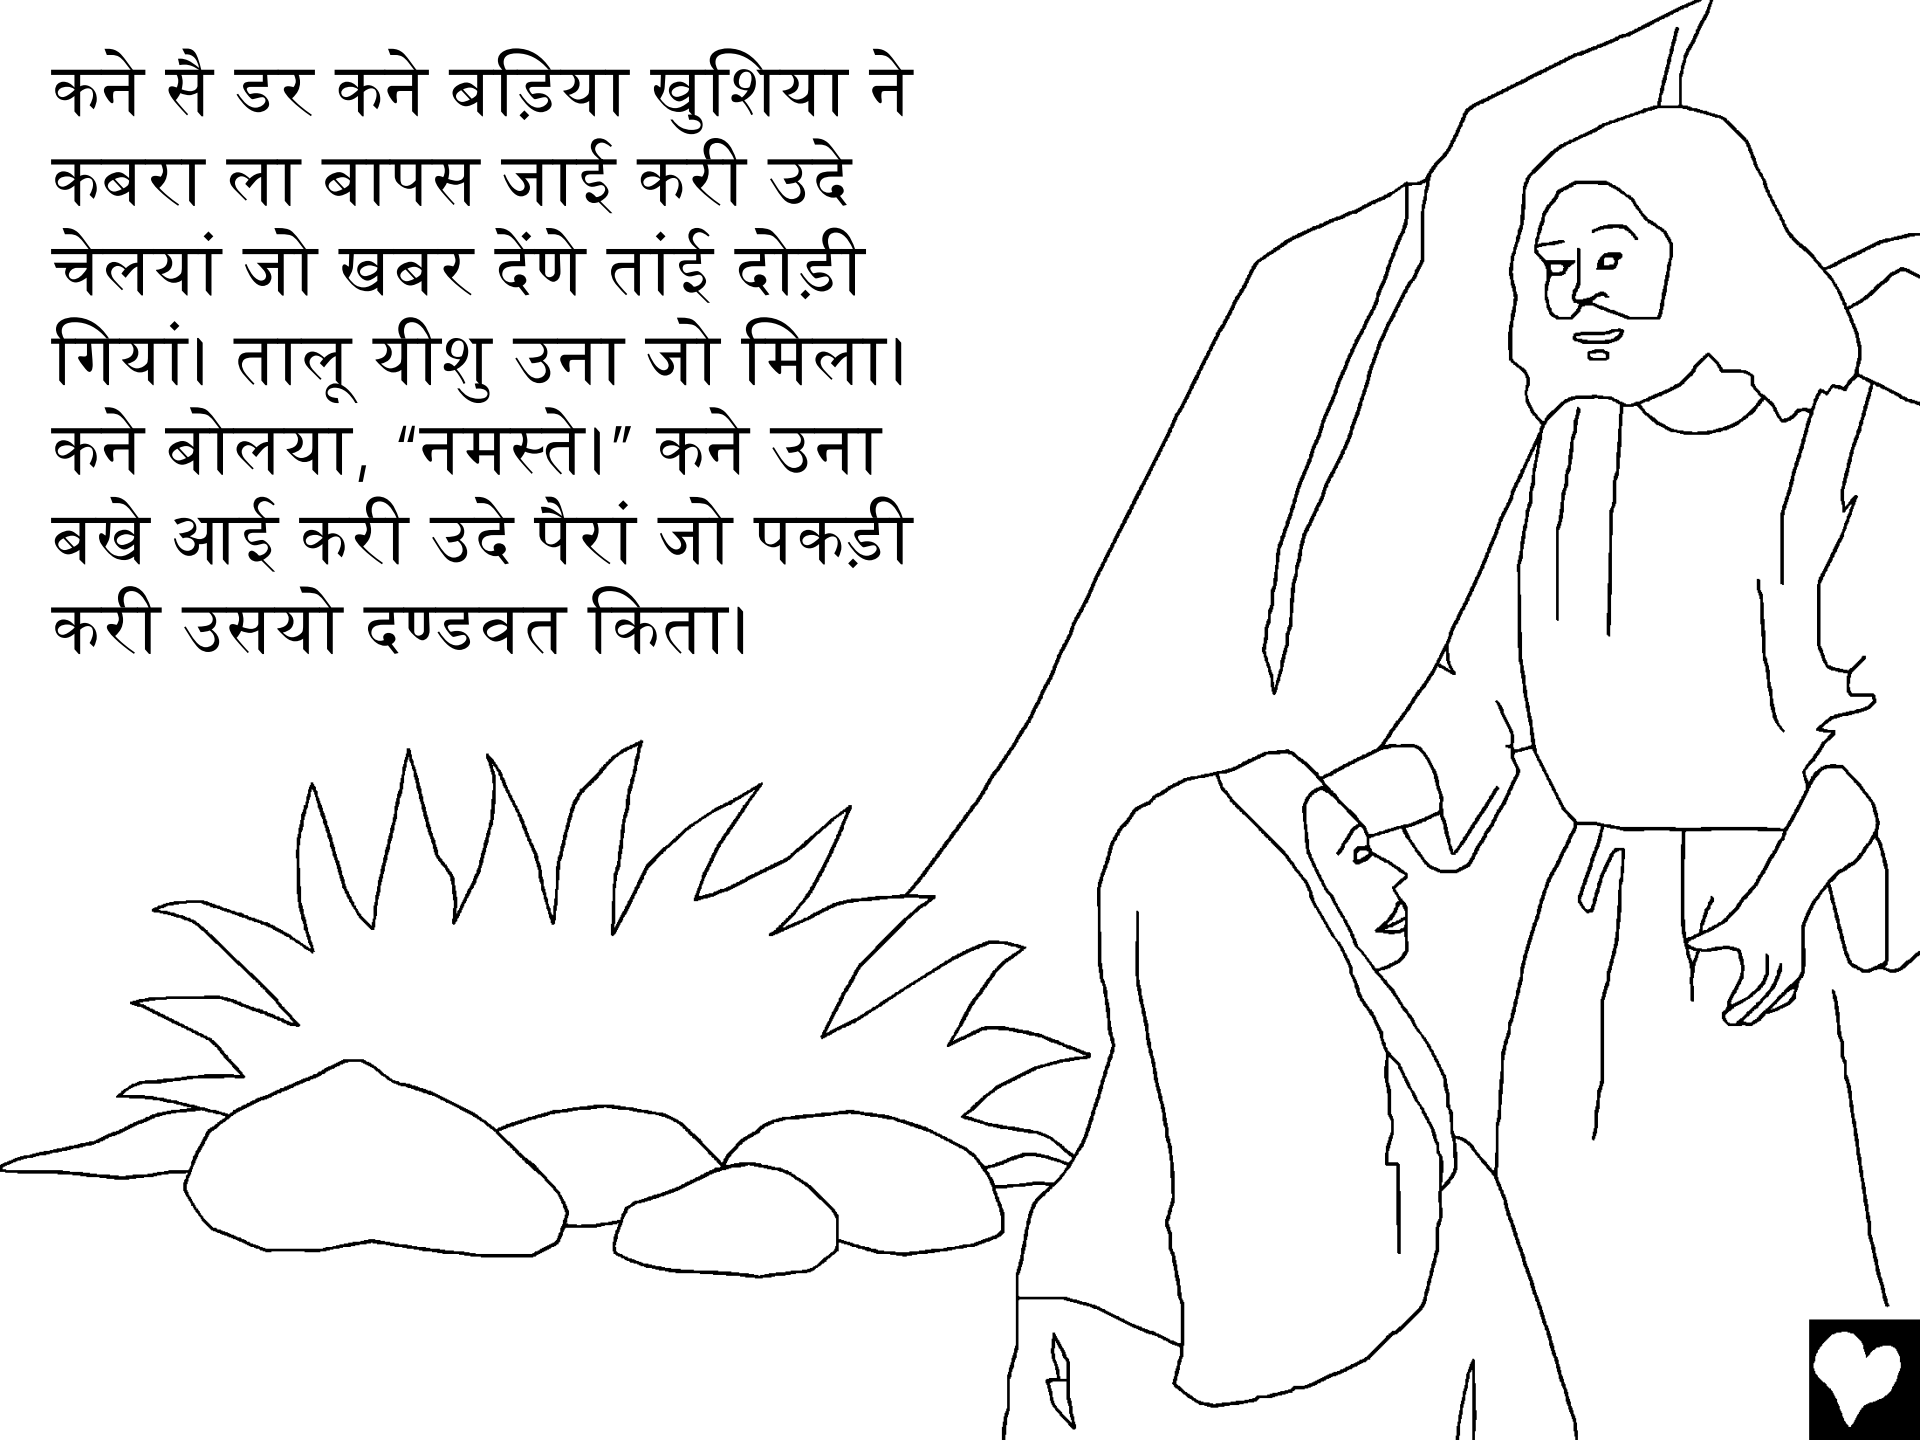 कने सै डर कने बड़िया खुशिया ने
कबरा ला बापस जाई करी उदे
चेलयां जो खबर देंणे तांई दोड़ी
गियां। तालू यीशु उना जो मिला।
कने बोलया, “नमस्ते।” कने उना
बखे आई करी उदे पैरां जो पकड़ी
करी उसयो दण्डवत किता।